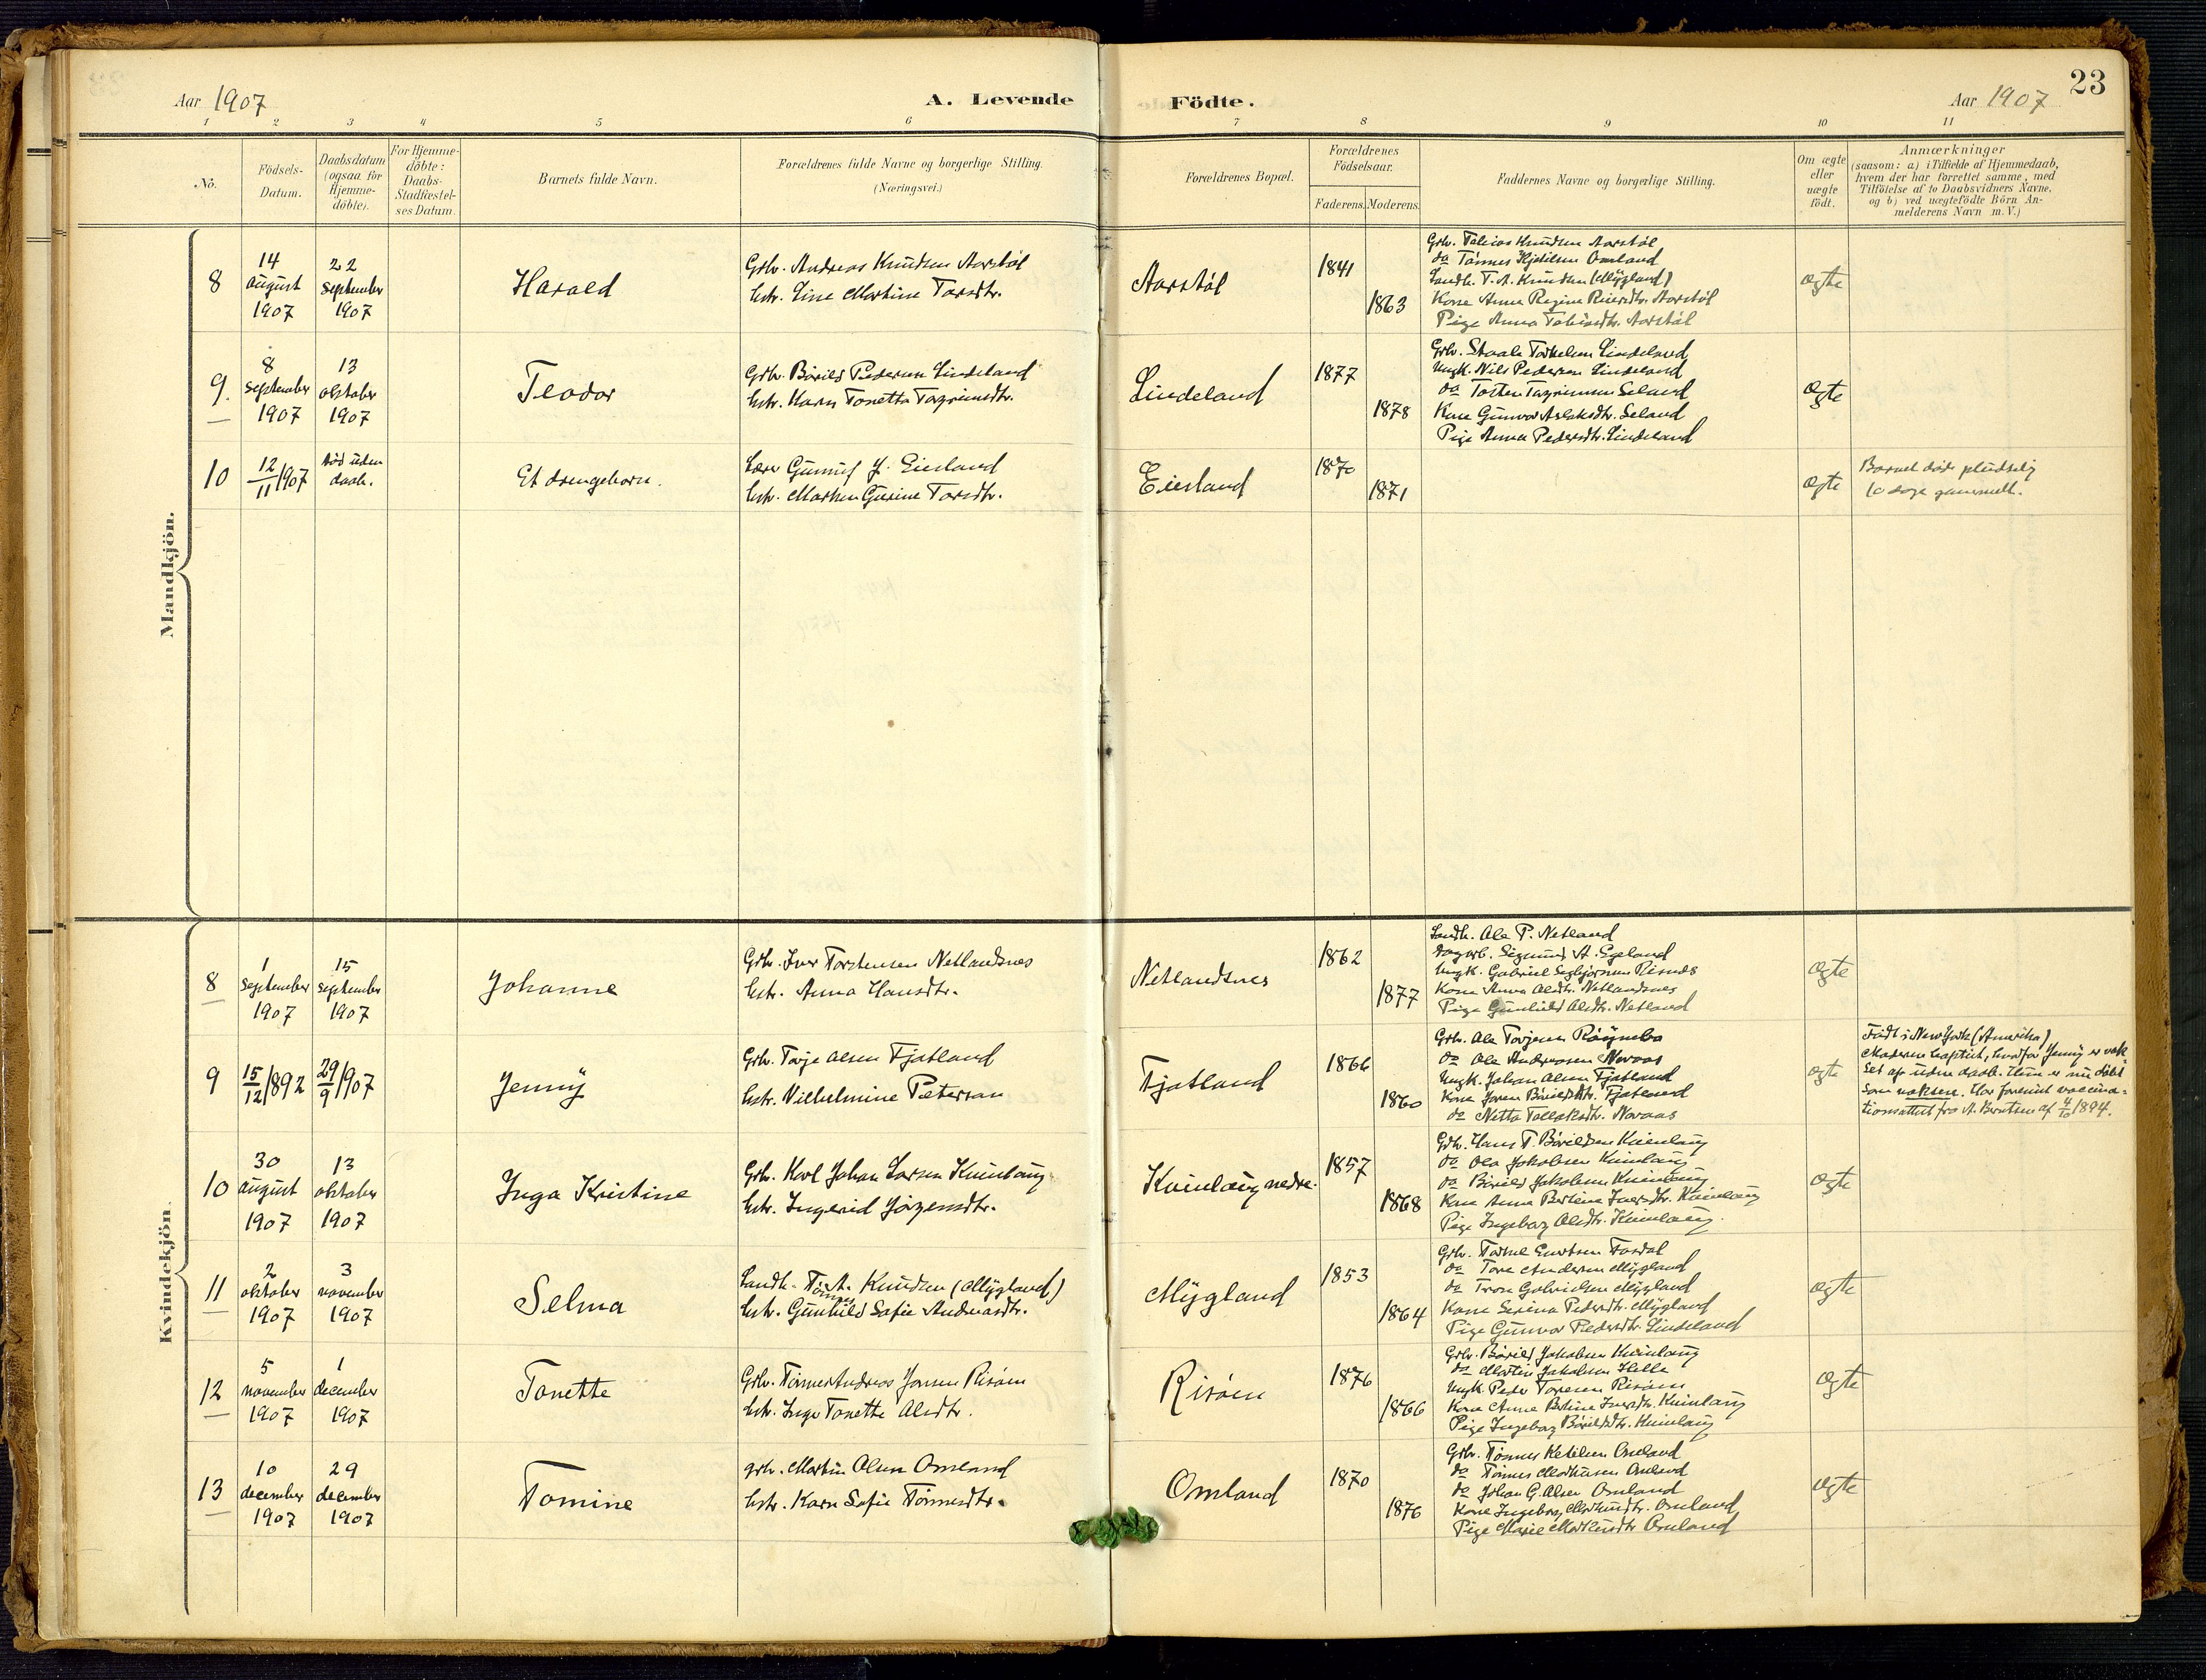 23
Aar 1907
A. Levende Födte.
Aar 1907
1 2 3 4 5 6 7 8 9 10 11
No.
Födsels-Datum.
Daabsdatum (ogsaa for Hjemme-döbte).
For Hjemme-döbte: Daabs-Stadfæstel-ses Datum.
Barnets fulde Navn.
Forældrenes fulde Navne og borgerlige Stilling.
(Næringsvei.)
Forældrenes Bopæl.
Forældrenes Födselsaar.
Faderens. Moderens.
Faddernes Navne og borgerlige Stilling.
Om ægte eller uægte födt.
Anmærkninger
(saasom: a) i Tilfælde af Hjemmedaab,
hvem der har forrettet samme, med
Tilföielse af to Daabsvidners Navne,
og b) ved uægtefödte Börn An-
melderens Navn m. V.)
Mandkjön.
8
14 august 1907
22 september 1907
Harald
Grbr. Andreas Knudsen Aarstøl
hstr. Sine Martine Tarsdtr.
Aarstøl
1841
1863
Grbr. Tobias Knudsen Aarstøl
do Tønnes Kjetilsen Omland
Landh. T. A. Knudsen (Mygland)
Kone Anna Regine Reiersdtr. Aarstøl
Pige Anna Tobiasdtr. Aarstøl
ægte
9.
8 september 1907
13 oktober 1907
Teodor
Grbr. Børild Pedersen Lindeland
hstr. Karen Tonetta Torgrimsdtr.
Lindeland
1877
1878
Grbr. Staale Torkelsen Lindeland
Ungk. Nils Pedersen Lindeland
do Torkel Torgrimsen Seland
Kone Gunvor Aslaksdtr. Seland
Pige Anna Pedersdtr. Lindeland
ægte
10
12/11 1907
død uden daab.
Et drengebarn.
Lærer Gunnuf J. Eiesland
hstr. Marthe Gurine Tarsdtr.
Eiesland
1870
1871
ægte
Barnet døde pludselig
10 dage gammelt.
Kvindekjön.
8
1 september 1907
15 september 1907
Johanne
Grbr. Iver Torstensen Netlandsnes
hstr. Anna Hansdtr.
Netlandsnes
1862
1877
Landh. Ole P. Netland
dagarb. Sigmund A. Egeland
Ungk. Gabriel Segbjørnsen Risnes
Kone Anna Olsdtr. Netlandsnes
Pige Gunhild Olsdtr. Netland
ægte
9
15/12 1892
29/9 1907
Jenny
Grbr. Tarje Olsen Fjotland
hstr. Vilhelmine Peterson
Fjotland
1866
1860
Grbr. Ole Torjesen Røynebo
do Ole Andreasen Noraas
Ungk. Johan Olsen Fjotland
Kone Joren Børildsdtr. Fjotland
do Nitta Tallaksdtr. Noraas
ægte
Født i New York (Amerika)
Moderen baptist, hvorfor Jenny er vok-
set op uden daab. Hun er nu døbt
som voksen. Har forevist vaccina-
tionsattest fra A. Berntsen af 4/10 1894.
10
30 august 1907
13 oktober 1907
Inga Kristine
Grbr. Karl Johan Larsen Kvinlaug
hstr. Ingerid Jørgensdtr.
Kvinlaug nedre.
1857
1868
Grbr. Hans T. Børildsen Kvinlaug
do Ola Jakobsen Kvinlaug
do Børild Jakobsen Kvinlaug
Kone Anna Bertine Iversdtr. Kvinlaug
Pige Ingeborg Olsdtr. Kvinlaug.
ægte
11
2 oktober 1907
3 november 1907
Selma
Landh. Tønnes A. Knudsen (Mygland)
hstr. Gunhild Sofie Andreasdtr.
Mygland
1853
1864
Grbr. Torkel Evertsen Fosdal
do Tore Andersen Mygland
do Tron Gabrielsen Mygland
Kone Serina Pedersdtr. Mygland
Pige Gunvor Pedersdtr. Lindeland
ægte
12
5 november 1907
1 december 1907
Tonette
Grbr. Tønnes Andreas Jonsen Risøen
hstr. Inge Tonette Olsdtr.
Risøen
1876
1866
Grbr. Børild Jakobsen Kvinlaug
do Martin Jakobsen Helle
Ungk. Peder Toresen Risøen
Kone Anne Bertine Iversdtr. Kvinlaug
Pige Ingeborg Børildsdtr. Kvinlaug
ægte
13
10 december 1907
29 december 1907
Tomine
Grbr. Martin Olsen Omland
hstr. Karen Sofie Tønnesdtr.
Omland
1870
1876
Grbr. Tønnes Ketilsen Omland
do Tønnes Markusen Omland
do Johan G. Olsen Omland
Kone Ingeborg Markusdtr. Omland
Pige Marie Markusdtr. Omland
ægte